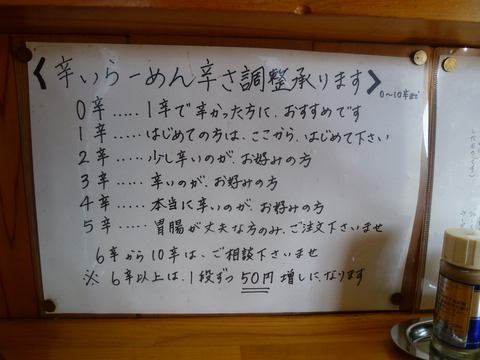 <辛いらーめん辛さ調整承ります>
0〜10辛まで
0辛‥‥‥1辛で辛かった方に、おすすめです
1辛‥‥‥はじめての方は、ここから、はじめて下さい
2辛‥‥‥少し辛いのが、お好みの方
3辛‥‥‥辛いのが、お好みの方
4辛‥‥‥本当に辛いのが、お好みの方
5辛‥‥‥胃腸が丈夫な方のみ、ご注文下さいませ
6辛から10辛は、ご相談下さいませ
※6辛以上は、1段ずつ50円増しに、なります